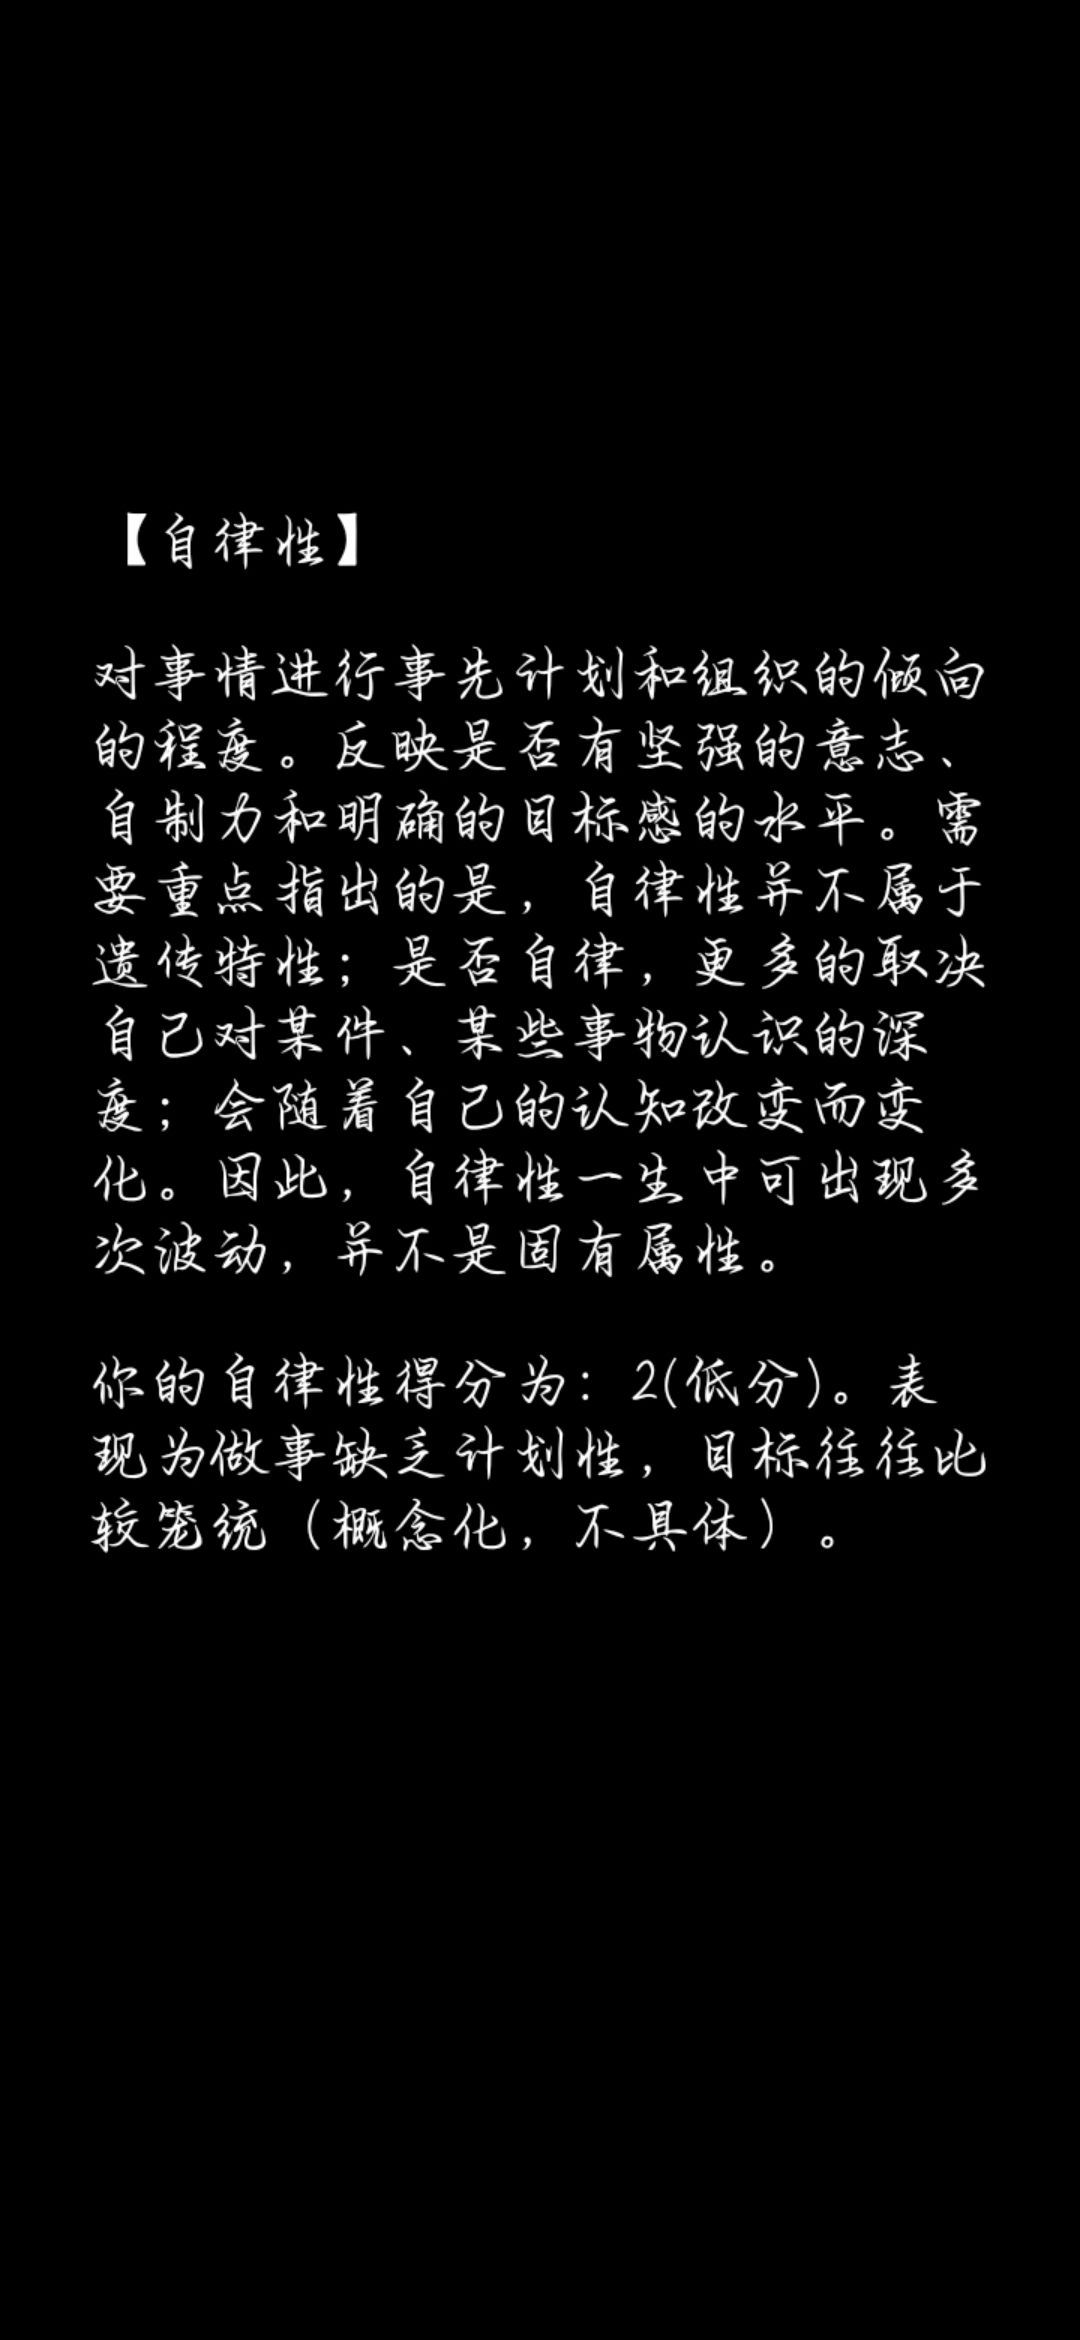 【自律性】
对事情进行事先计划和组织的倾向
的程度。反映是否有坚强的意志、
自制力和明确的目标感的水平。需
要重点指出的是，自律性并不属于
遗传特性；是否自律，更多的取决
自己对某件、某些事物认识的深
度；会随着自己的认知改变而变
化。因此，自律性一生中可出现多
次波动，并不是固有属性。
你的自律性得分为：2(低分)。表
现为做事缺乏计划性，目标往往比
较笼统（概念化，不具体）。